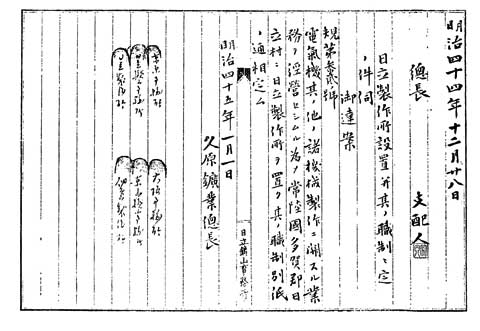 明治四十四年十二月廿八日
總長
支配人
日立製作所設置并其ノ職制ニ定
ノ件伺
規第参貮號
御達案
電氣機其ノ他ノ諸機械製作ニ関スル業
務ノ經營セシムル為ノ常陸國多賀郡日
立村ニ日立製作所ヲ置ク其ノ職制別紙
ノ通相定ム
明治四十五年一月一日
久原鑛業總長
日立鑛山事務所